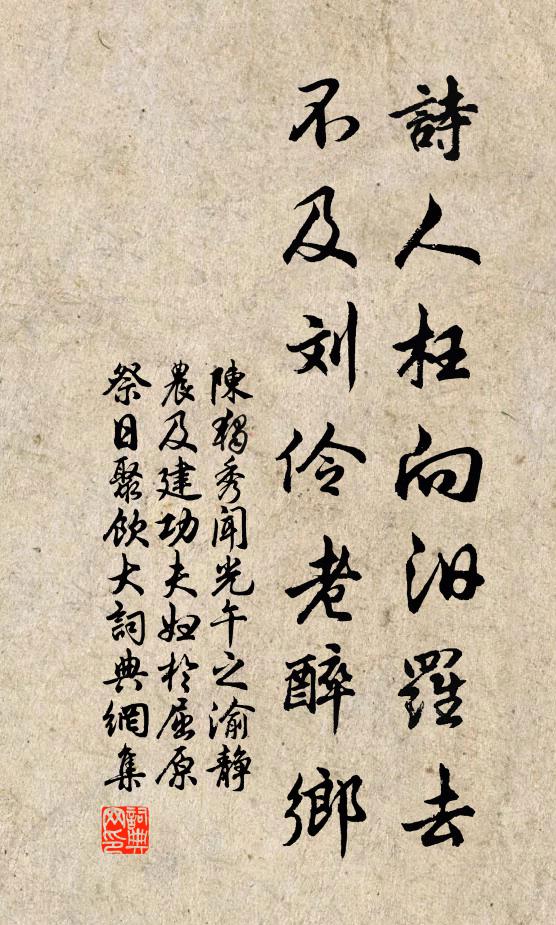 詩人枉向汨羅去
不及刘伶老醉鄉
陳獨秀聞光午之渝静
農及建功夫妇於屈原
祭日聚飲大詞典網集
詞典
网印